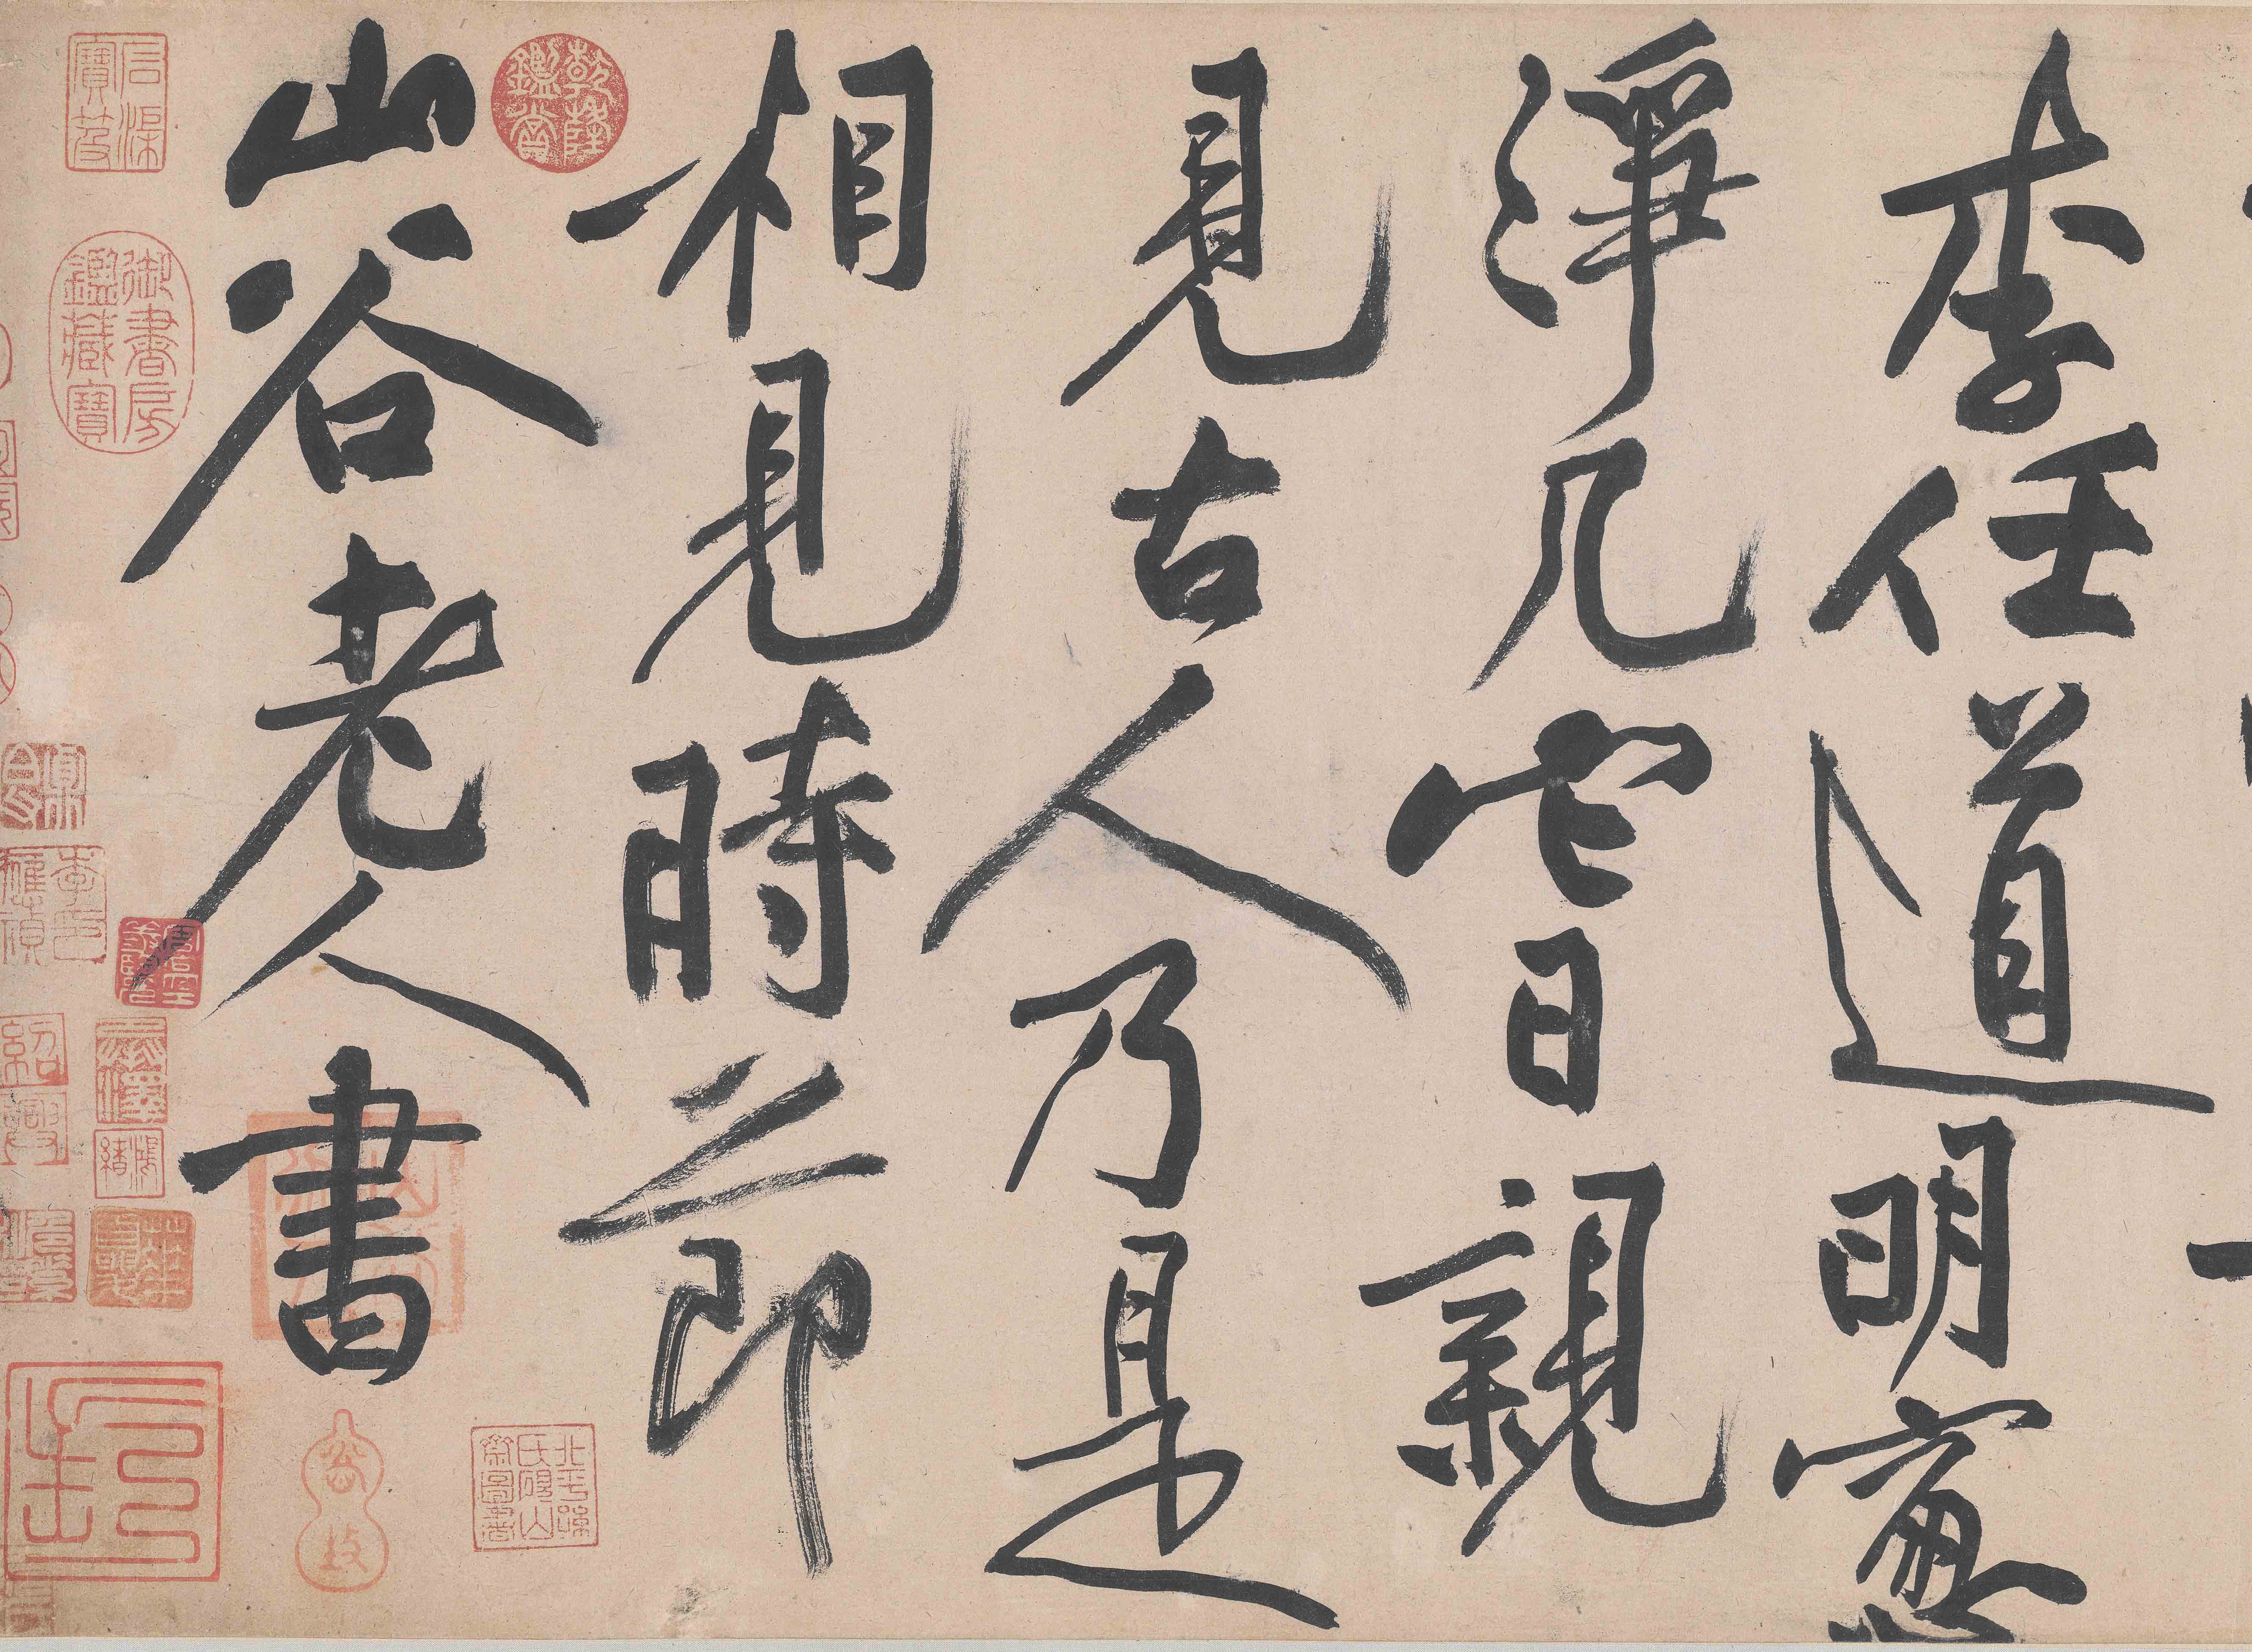 李任道明窻
淨几它日親
見古人乃是
相見時節
山谷老人書
乾隆鑑賞
石渠寶笈
御書房鑑藏寶
北平孫氏硯山齋圖書